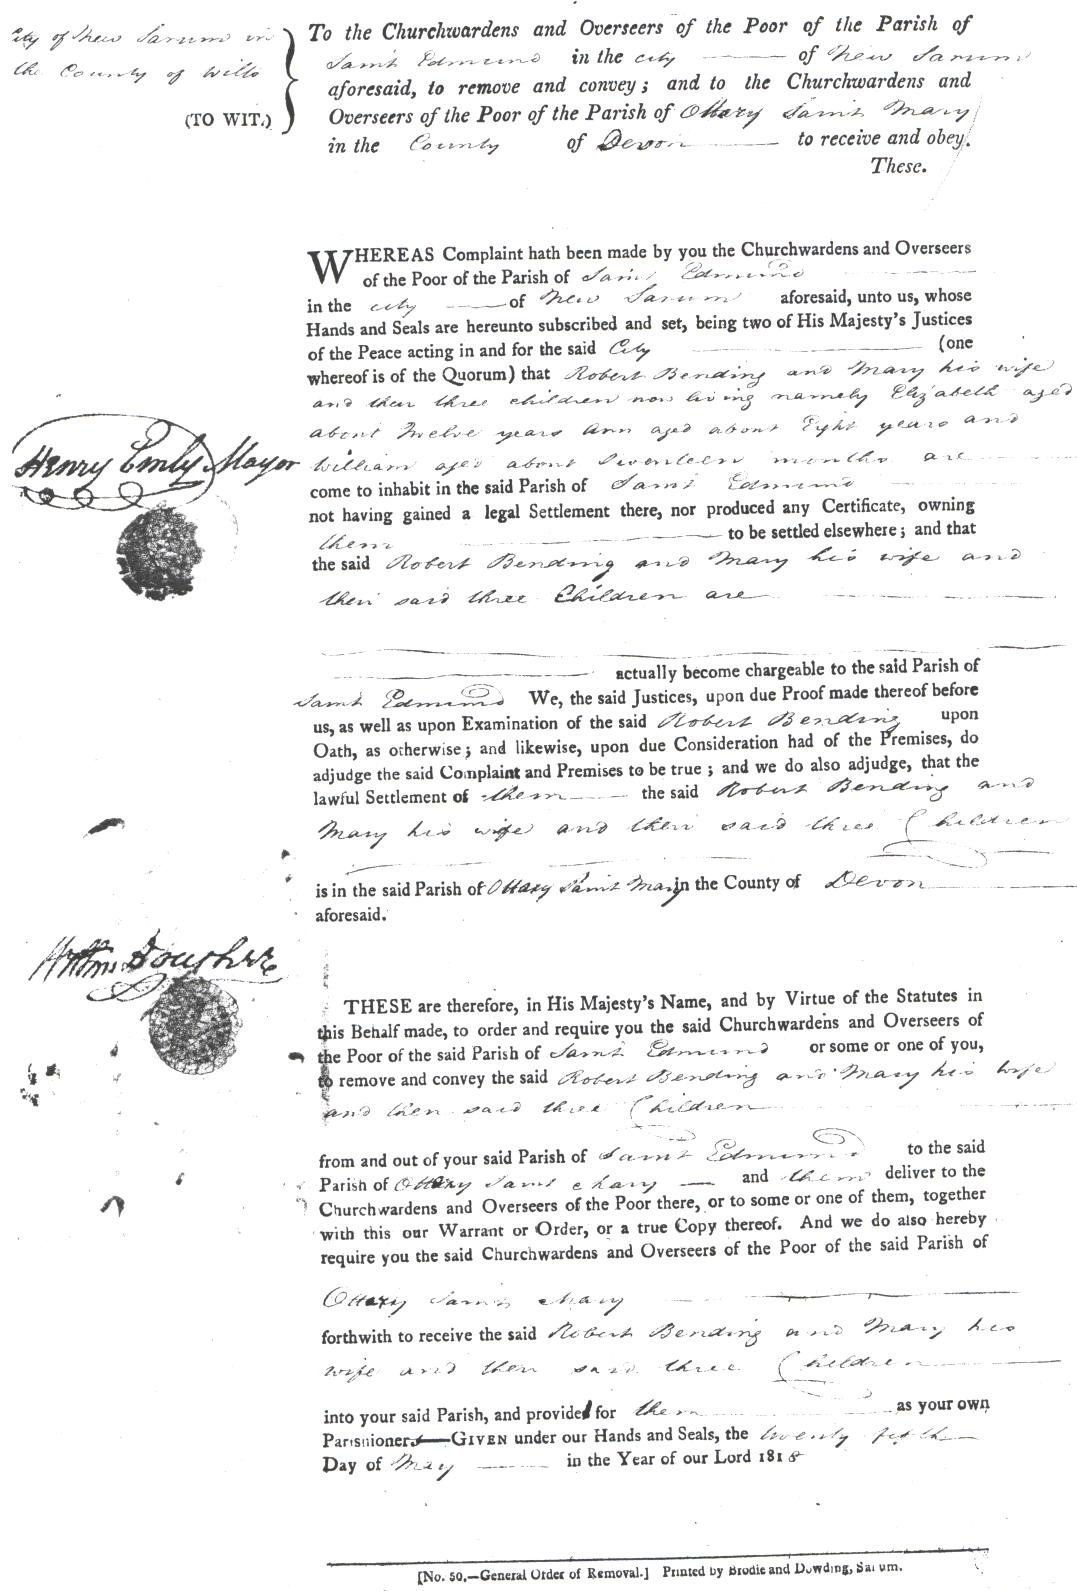 City of New Sarum in
the County of Wilts
(TO WIT.)
To the Churchwardens and Overseers of the Poor of the Parish of
Saint Edmund in the city of New Sarum
aforesaid, to remove and convey; and to the Churchwardens and
Overseers of the Poor of the Parish of Ottery Saint Mary
in the County of Devon to receive and obey.
These.
WHEREAS Complaint hath been made by you the Churchwardens and Overseers
of the Poor of the Parish of Saint Edmund
in the city of New Sarum aforesaid, unto us, whose
Hands and Seals are hereunto subscribed and set, being two of His Majesty's Justices
of the Peace acting in and for the said City (one
whereof is of the Quorum) that Robert Bending and Mary his wife
and their three children now living namely Elizabeth aged
about Twelve years Ann aged about Eight years and
William aged about Seventeen months are
Henry Emly Mayor
come to inhabit in the said Parish of Saint Edmund
not having gained a legal Settlement there, nor produced any Certificate, owning
them to be settled elsewhere; and that
the said Robert Bending and Mary his wife and
their said three Children are
actually become chargeable to the said Parish of
Saint Edmund We, the said Justices, upon due Proof made thereof before
us, as well as upon Examination of the said Robert Bending upon
Oath, as otherwise; and likewise, upon due Consideration had of the Premises, do
adjudge the said Complaint and Premises to be true; and we do also adjudge, that the
lawful Settlement of them the said Robert Bending and
Mary his wife and their said three Children
is in the said Parish of Ottery Saint Mary in the County of Devon
aforesaid.
THESE are therefore, in His Majesty's Name, and by Virtue of the Statutes in
this Behalf made, to order and require you the said Churchwardens and Overseers of
the Poor of the said Parish of Saint Edmund or some or one of you,
to remove and convey the said Robert Bending and Mary his wife
and their said three Children
from and out of your said Parish of Saint Edmund to the said
Parish of Ottery Saint Mary and them deliver to the
Churchwardens and Overseers of the Poor there, or to some or one of them, together
with this our Warrant or Order, or a true Copy thereof. And we do also hereby
require you the said Churchwardens and Overseers of the Poor of the said Parish of
Ottery Saint Mary
forthwith to receive the said Robert Bending and Mary his
wife and their said three Children
into your said Parish, and provide for them as your own
Parishioners—GIVEN under our Hands and Seals, the twenty fifth
Day of May in the Year of our Lord 1818
[No. 50.—General Order of Removal.] Printed by Brodie and Dowding, Sarum.